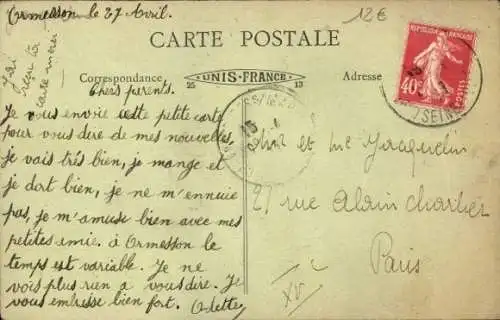 Ormesson le 27 Avril.
12€
CARTE POSTALE
J'ai
reçu ta
carte merci
Correspondance
UNIS-FRANCE
25
13
Adresse
REPUBLIQUE FRANÇAISE
40c
POSTES
SEINE
Chers parents.
Je vous envoie cette petite carte
pour vous dire de mes nouvelles,
je vais très bien, je mange et
je dort bien, je ne m'ennuie
pas, je m'amuse bien avec mes
petites amie. à Ormesson le
temps est variable. Je ne
vois plus rien a vous dire. Je
vous embrasse bien fort. Odette
et Me Jacquelin
27 rue Alain Chartier
Paris
XV